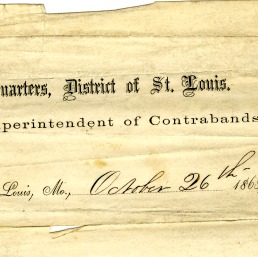 uarters, District of St. Louis.
perintendent of Contrabands
Louis, Mo., October 26th 186